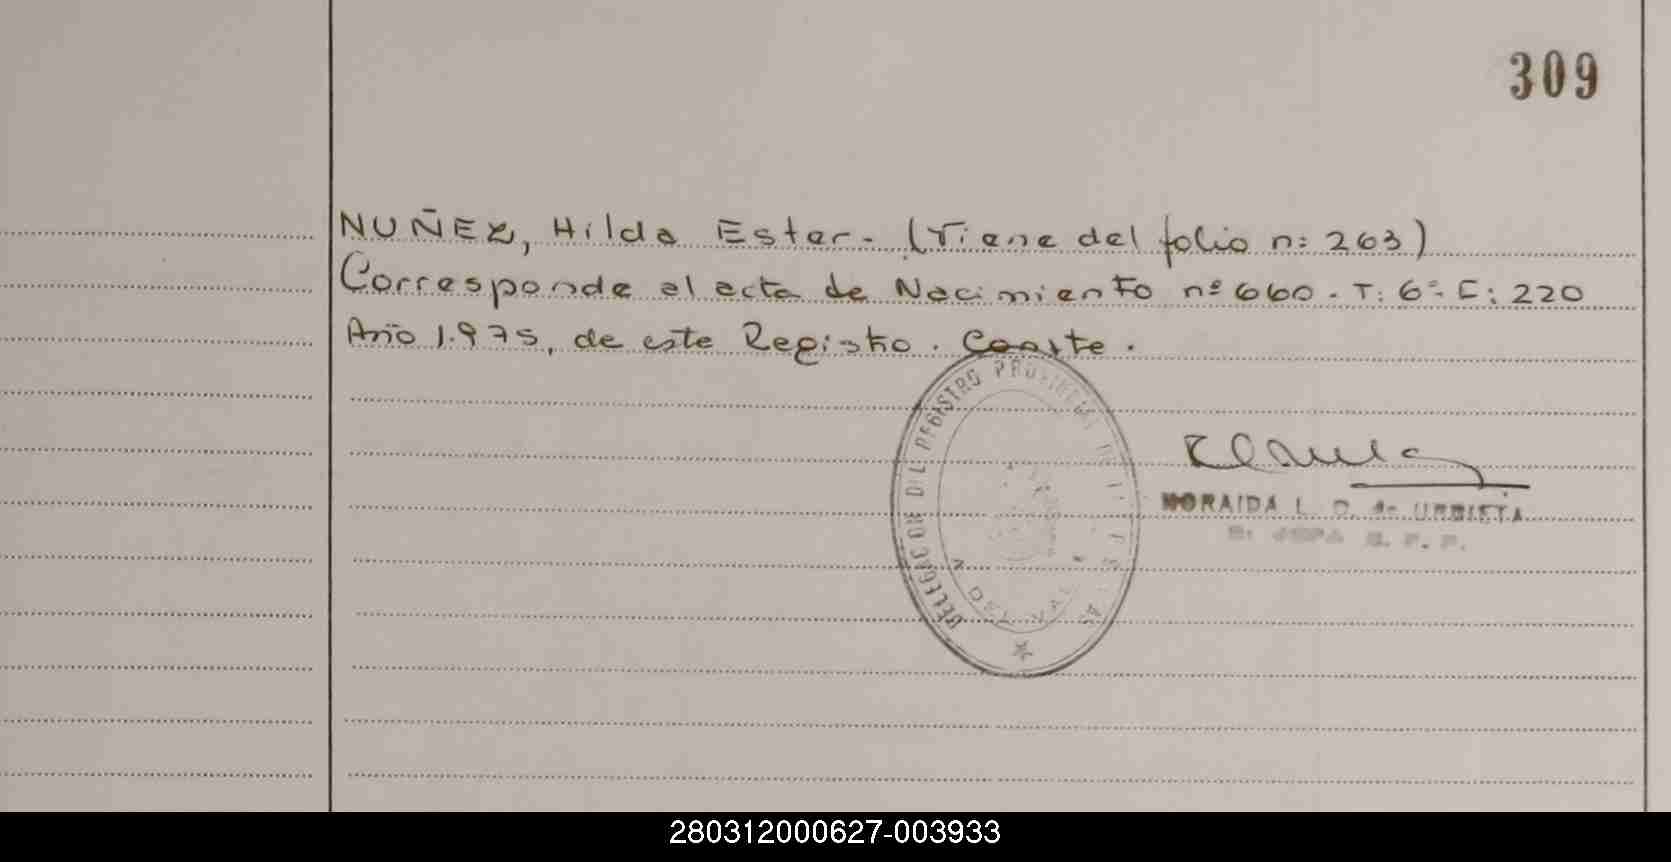 309
NUÑEZ, Hilda Ester.- (Viene del folio n: 263)
Corresponde al acta de Nacimiento nº 660. T: 6º- F: 220
Año 1.975, de este Registro. Conste.
DELEGACION DEL REGISTRO PROVINCIAL DE
DEL VAL
NORAIDA L. de URBIETA
280312000627-003933